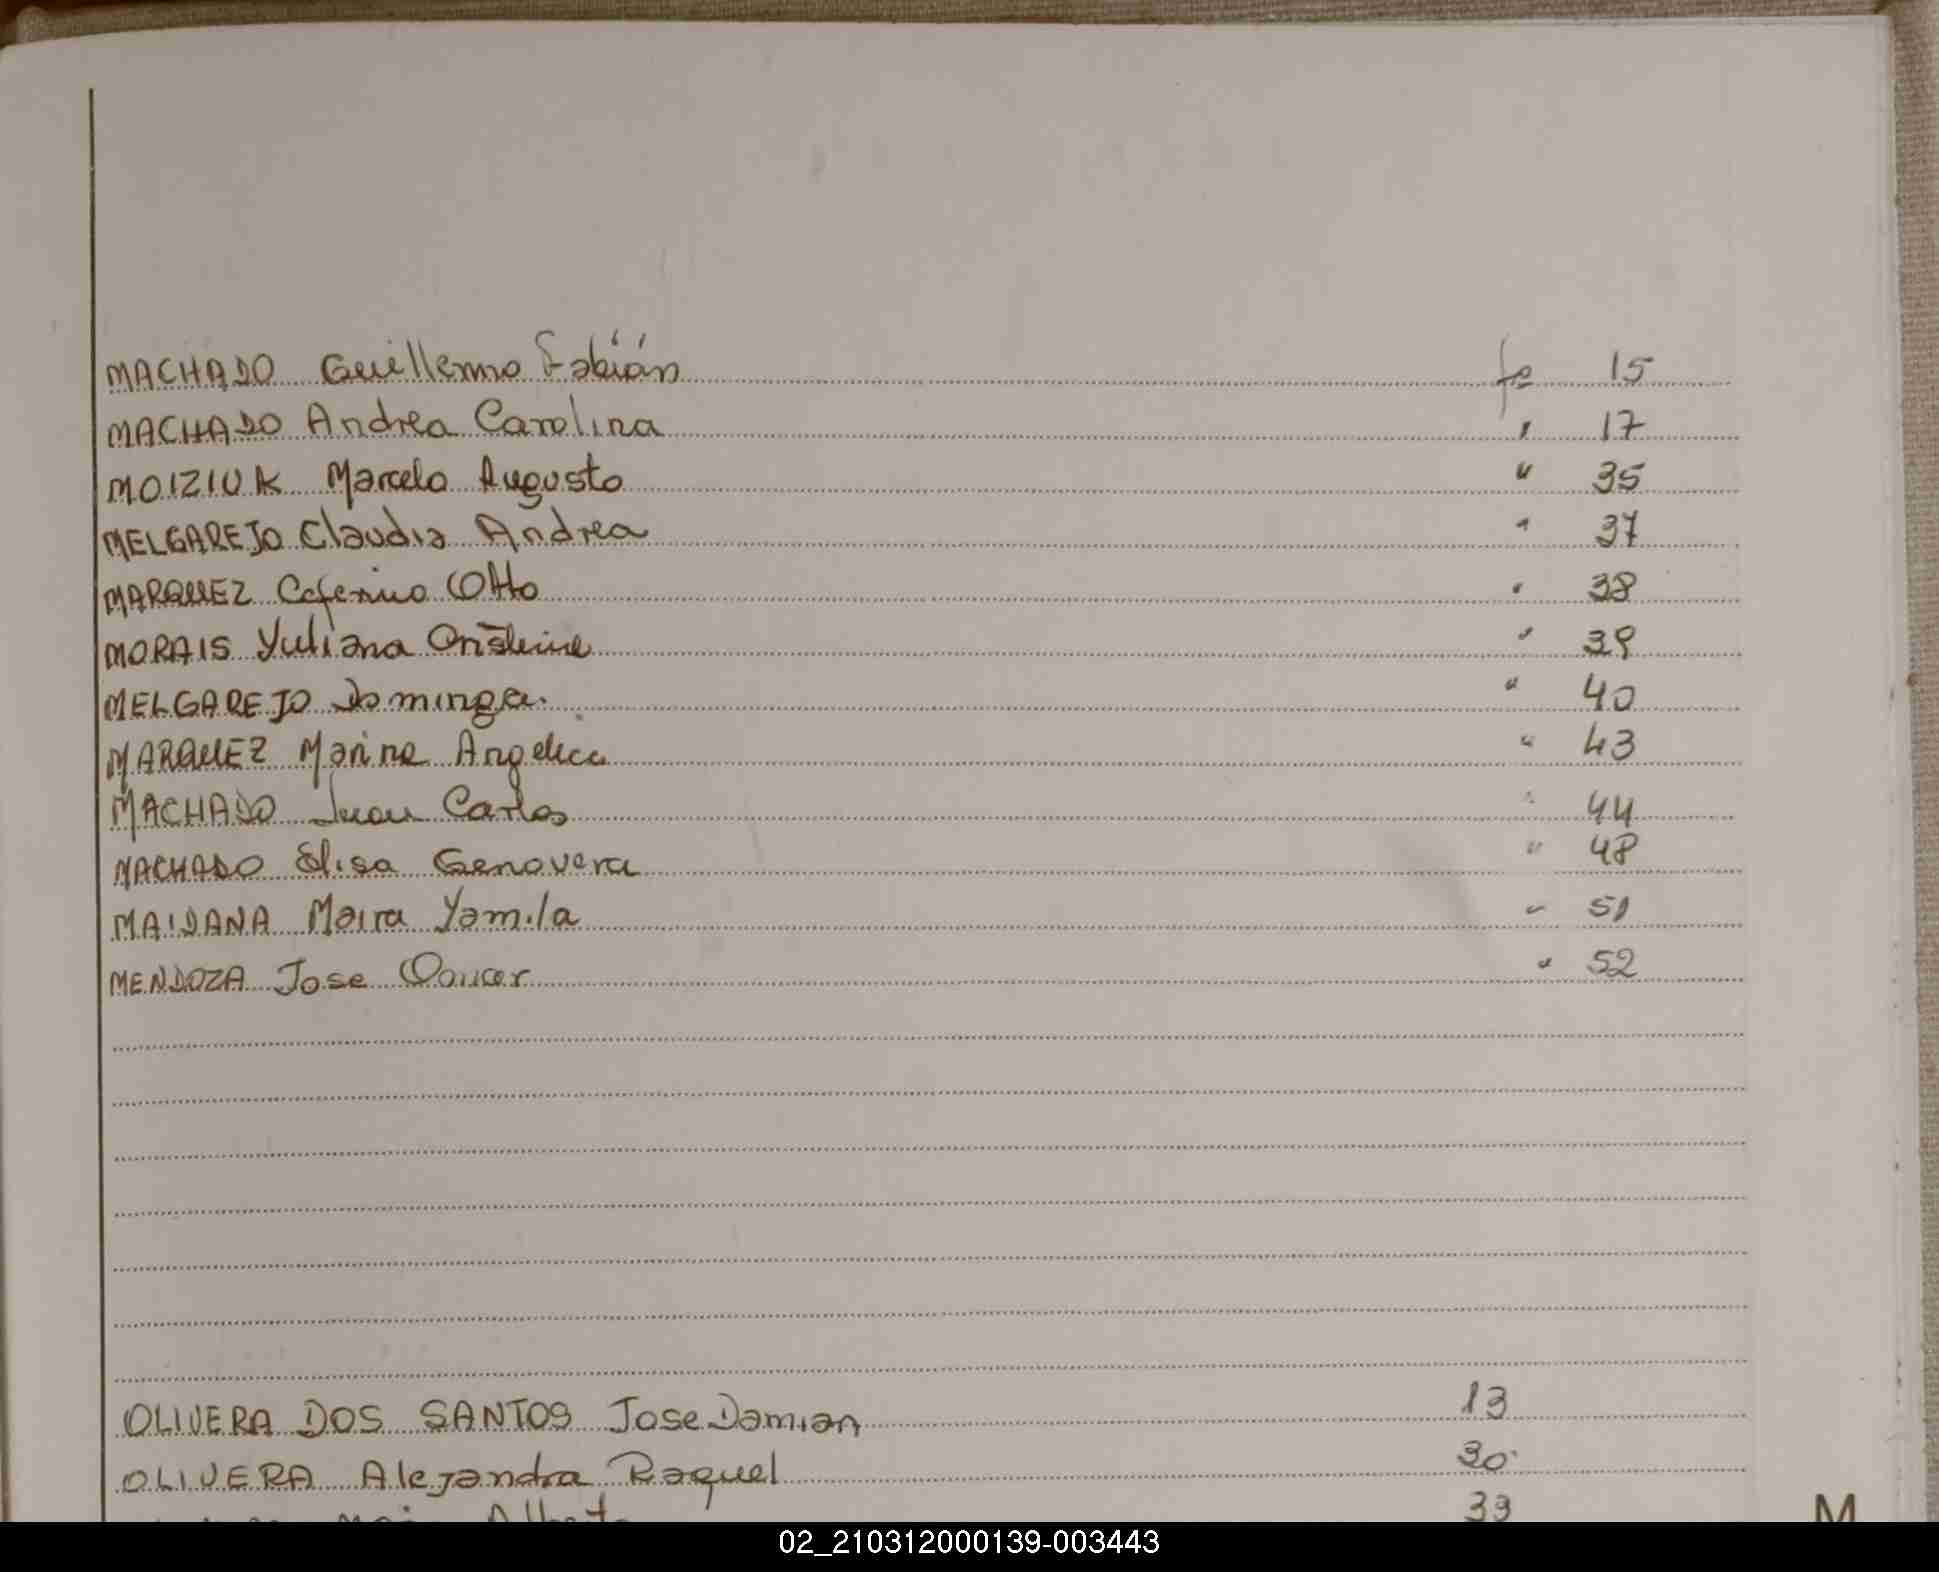 MACHADO Guillermo Fabián fo 15
MACHADO Andrea Carolina " 17
MOIZIUK Marcelo Augusto " 35
MELGAREJO Claudia Andrea " 37
MARQUEZ Ceferino Otto " 38
MORAIS Yuliana Cristeine " 39
MELGAREJO Dominga. " 40
MARQUEZ Marina Angelica " 43
MACHADO Juan Carlos " 44
MACHADO Elisa Genovera " 48
MAIDANA Maira Yamila " 51
MENDOZA Jose " 52
OLIVERA DOS SANTOS Jose Damian 13
OLIVERA Alejandra Raquel 30
Alberto 39
M
02_210312000139-003443